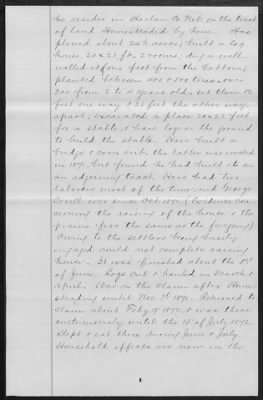 he resides in Harlan Co Neb. on the tract
of land Homesteaded by him. Has
plowed about 20 acres; built a log
house, 21 x 27 ft, 2 rooms; dug a well
walled feet from the bottom;
planted between 500 & 600 trees
from 2 to 11 years old. set them 12
feet one way & 21 feet the other way,
apart; excavated a place 20 x 22 feet
for a stable & have logs on the ground
to build the stable. Have built a
bridge & oven with the latter excavated
in 1871, but found he had built it on
an adjoining tract. Have had two
laborers most of the time and George
Covell ever since Oct. 1871. (Evidence con-
cerning the raising of the house & the
prairie fire same as the foregoing)
Owing to the settlers being busily
engaged could not complete raising
house. It was finished about the 1st
of June. Logs cut & hauled in March &
April. Was on the Claim after Home-
steading until Nov. 1st 1871. Returned to
claim about Feby 1st 1872 & was there
continuously until the 15th of July 1872
Slept & eat there during June & July
Household effects are now in the